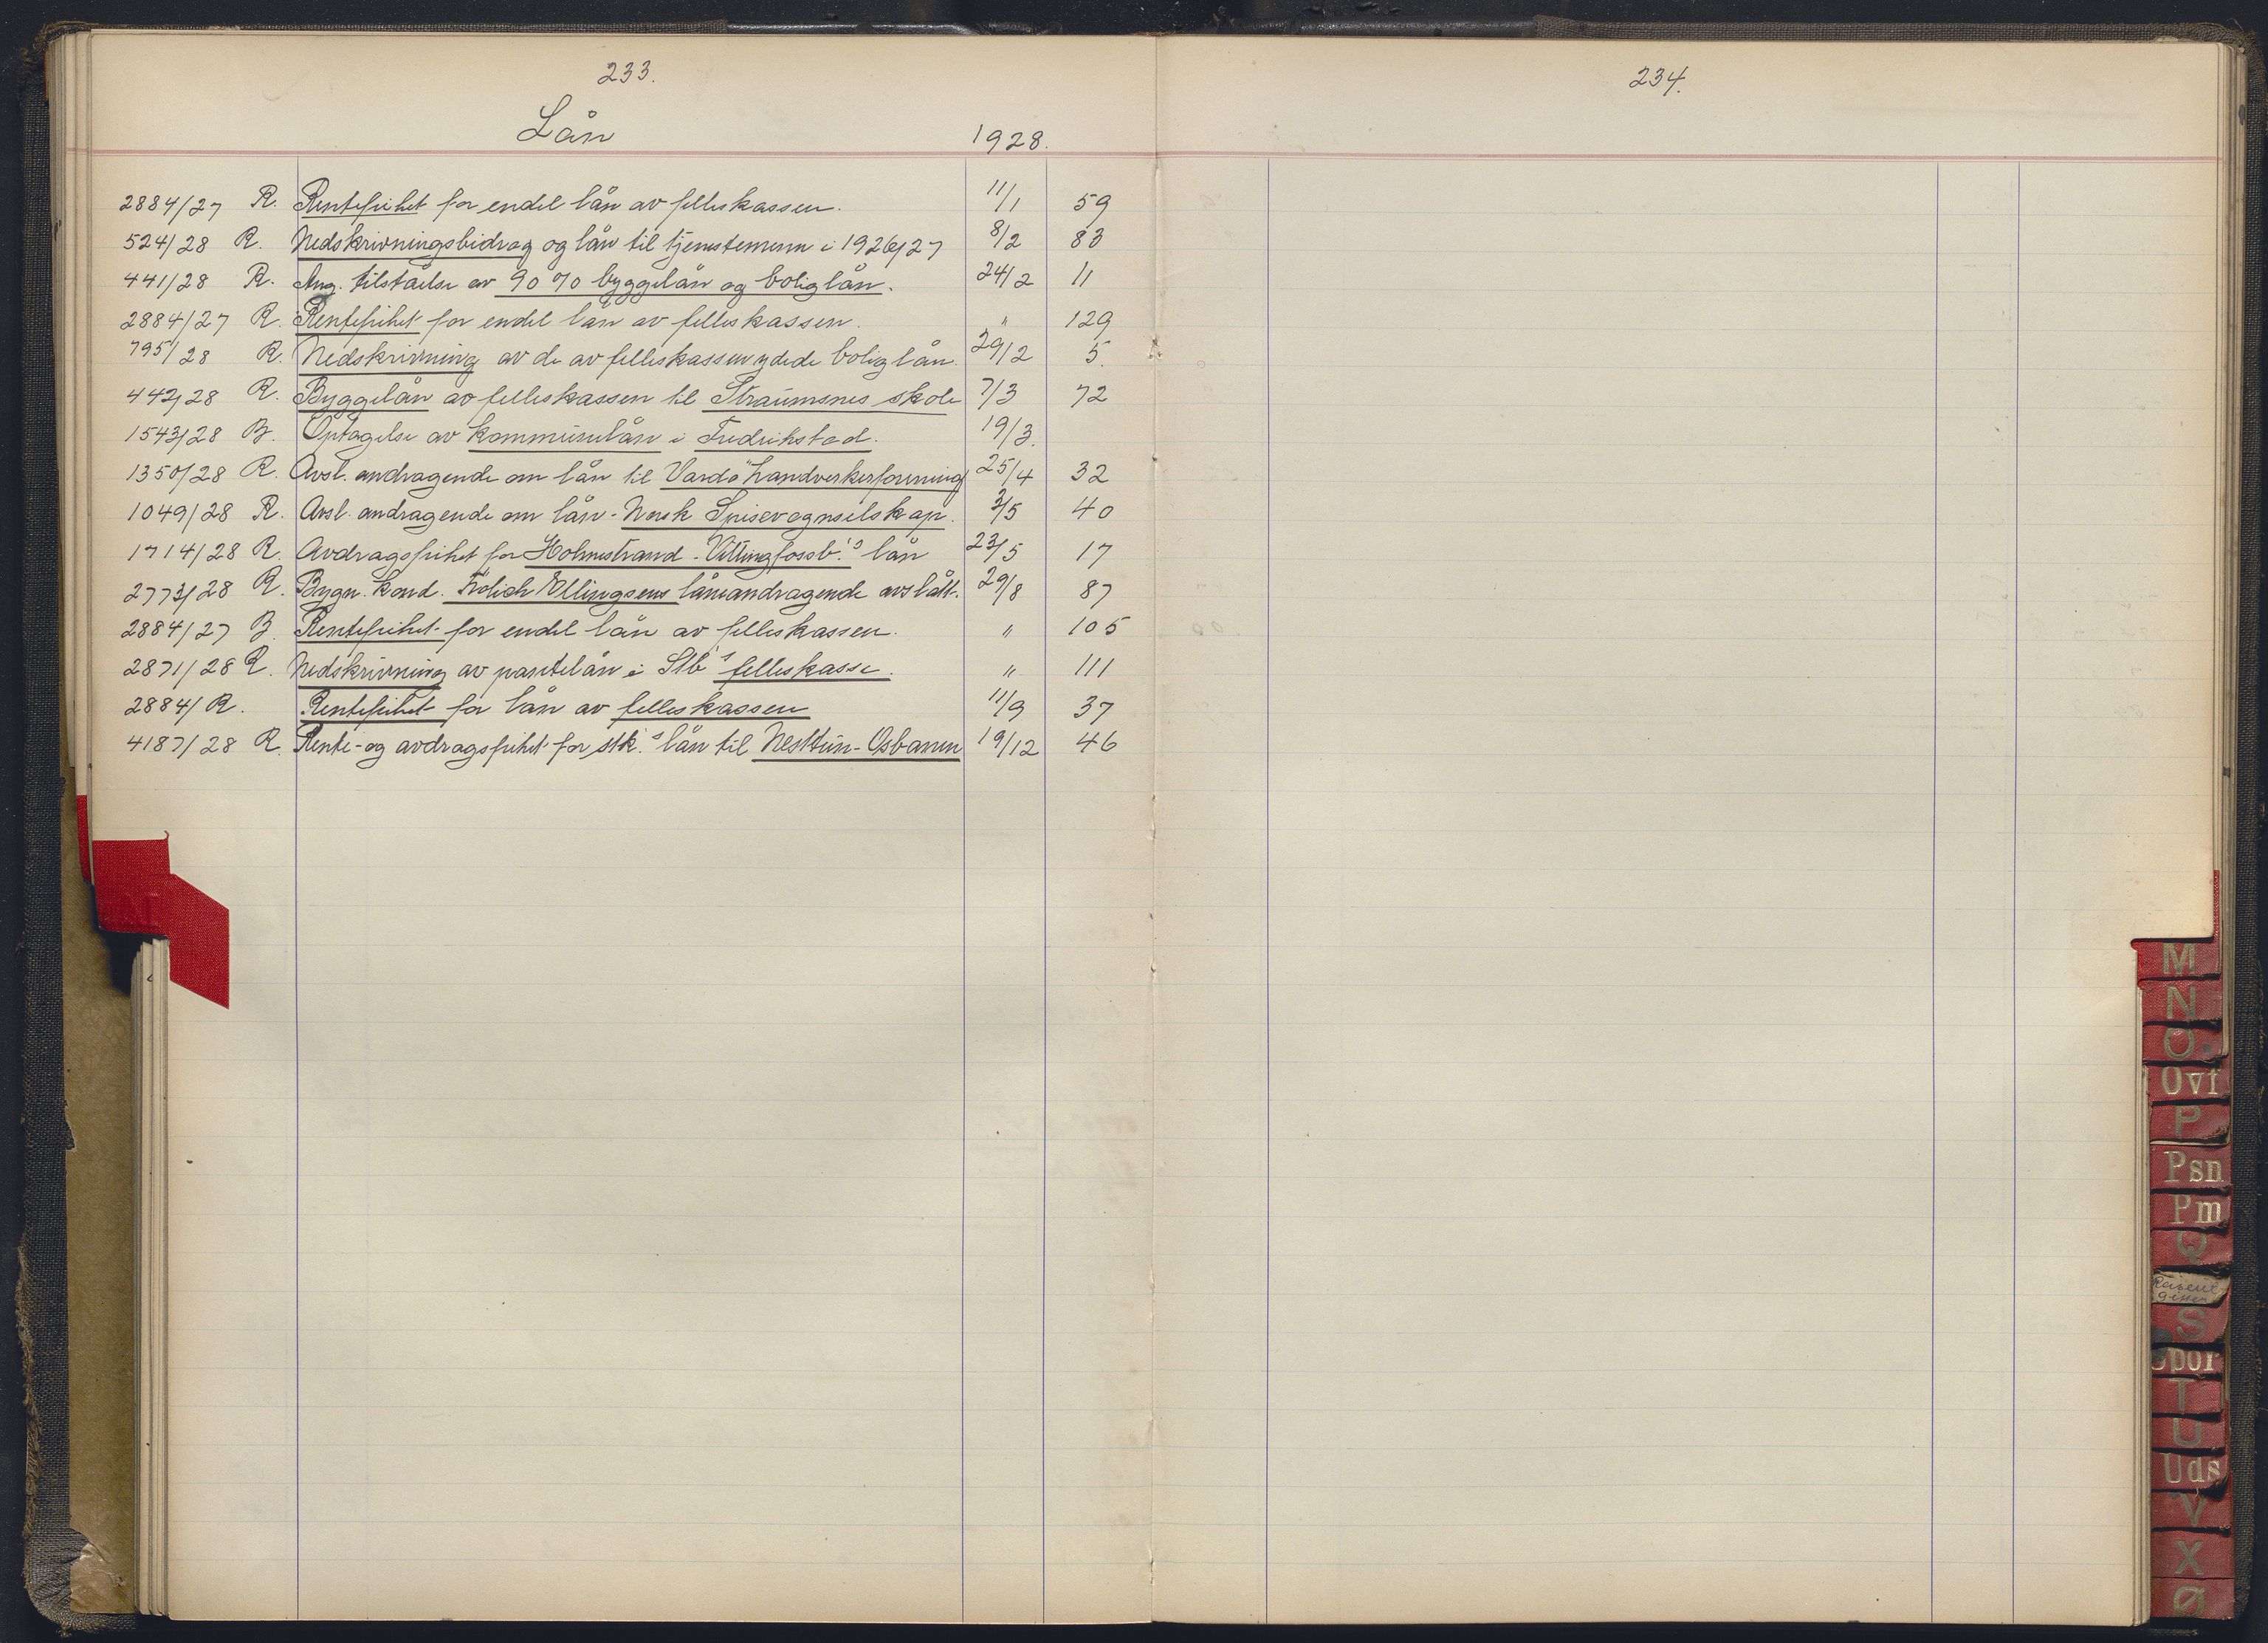 233.
Lån 1928.
2884/27 R. Rentefrihet for endel lån av felleskassen. 11/1 59
524/28 R. Nedskrivningsbidrag og lån til tjenestemenn i 1926/27 8/2 83
441/28 R. Ang. tilståelse av 90 % byggelån og boliglån. 24/2 11
2884/27 R. Rentefrihet for endel lån av felleskassen. " 129
795/28 R. Nedskrivning av de av felleskassen ydede boliglån. 29/2 5.
442/28 R. Byggelån av felleskassen til Straumsnes skole 7/3 72
1543/28 B. Optagelse av kommunelån i Fredrikstad. 19/3.
1350/28 R. Avsl. andragende om lån til Vardö Handverkerforening 25/4 32
1049/28 R. Avsl. andragende om lån - Norsk Spisevognselskap. 3/5 40
1714/28 R. Avdragsfrihet for Holmestrand - Vittingfossb.'s lån 23/5 17
2773/28 R. Bygn. kond. Frölich Ellingsens låneandragende avslått. 29/8 87
2884/27 B. Rentefrihet for endel lån av felleskassen. " 105
2871/28 R. Nedskrivning av pantelån i Stb's felleskasse. " 111
2884/ R. Rentefrihet for lån av felleskassen 11/9 37
4187/28 R. Rente- og avdragsfrihet for stk.'s lån til Nesttun - Osbanen 19/12 46
234.
M
N
O
Ovf
P
Psn
Pm
Q
S
Spor
T
U
Uds
V
X
Ø